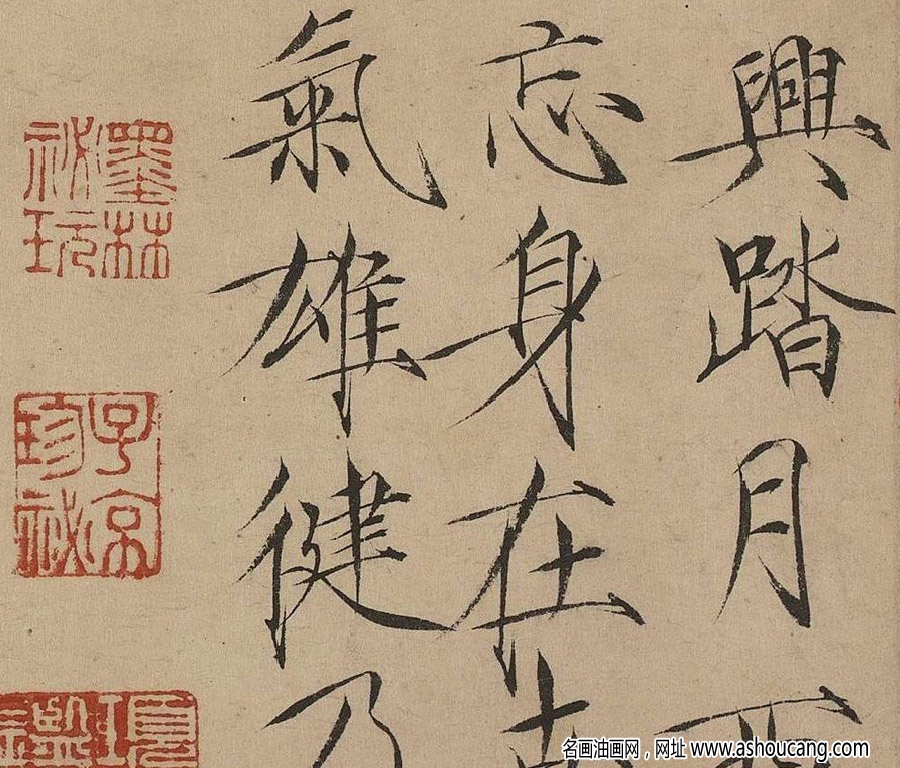 興踏月西
忘身在
氣雄健乃
墨林
祕玩
子京
珍祕
項
名画油画网，网址 www.ashoucang.com